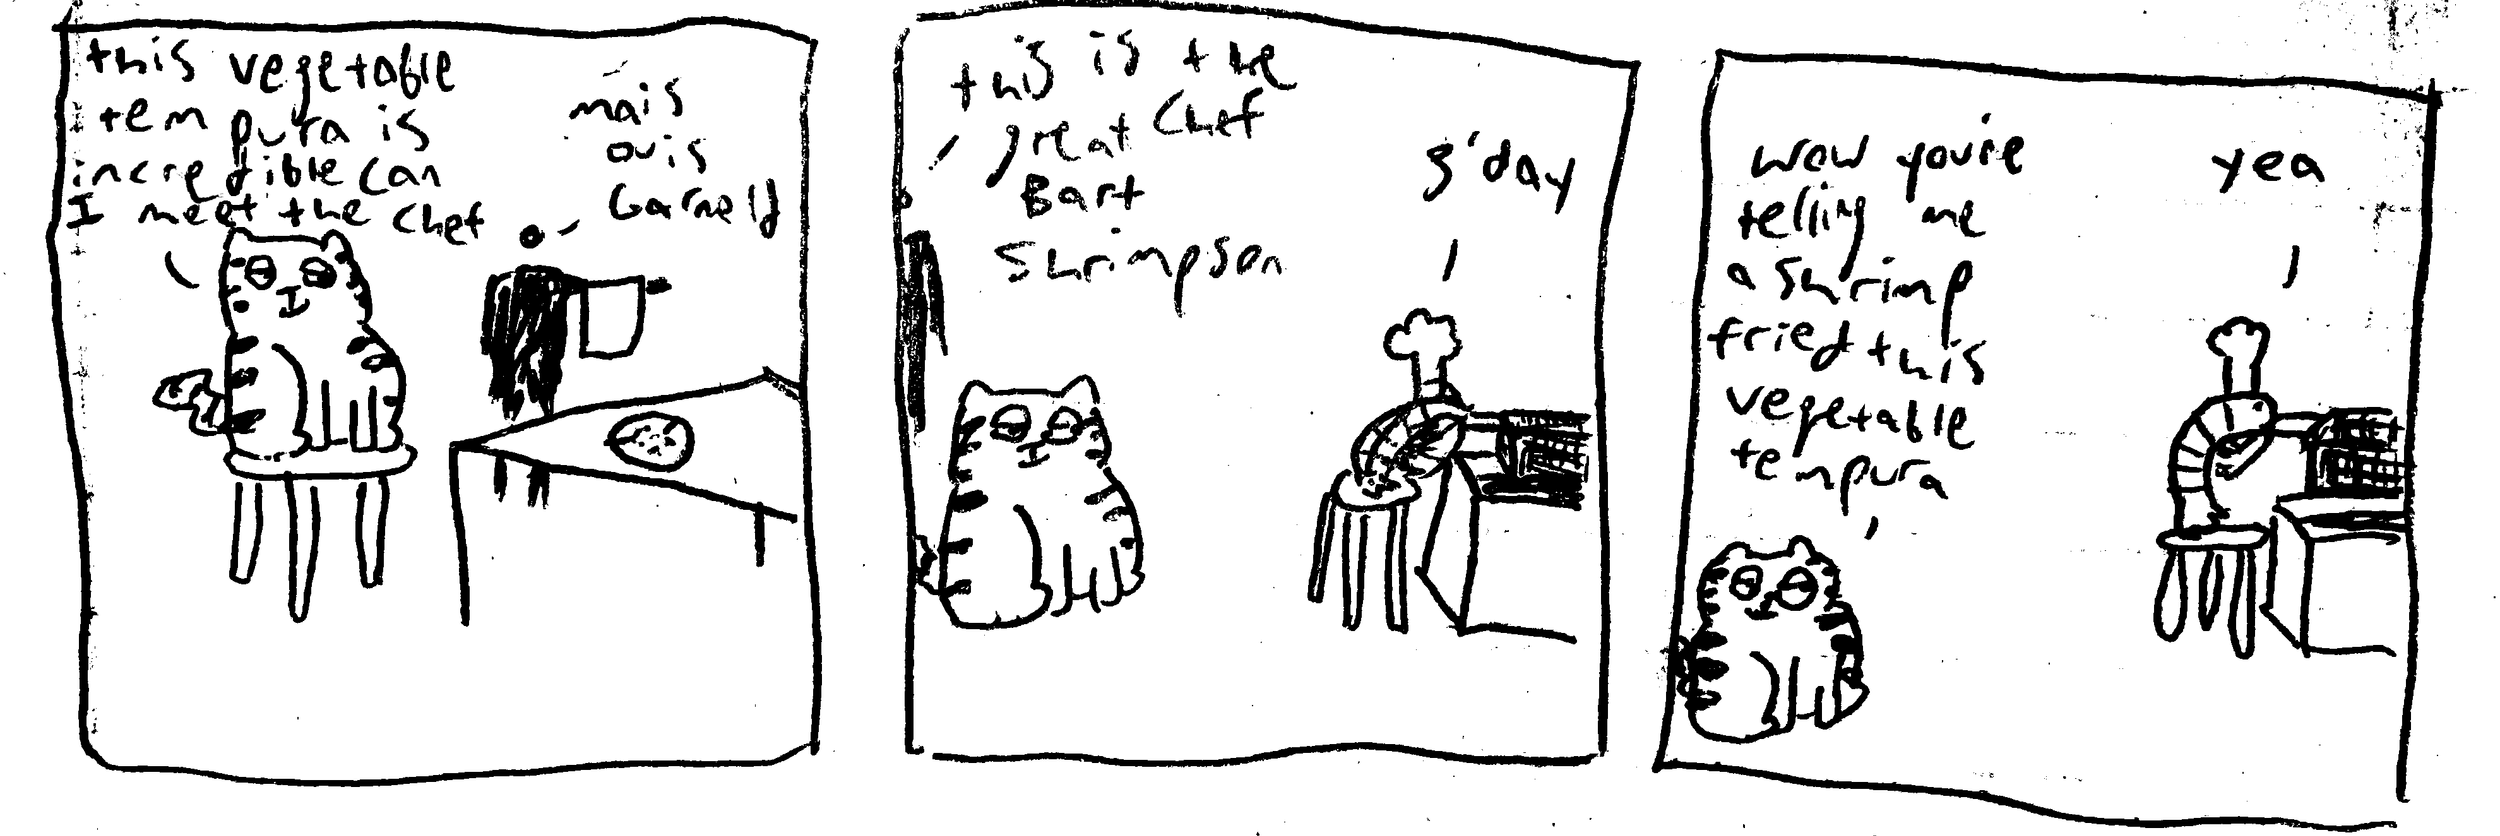 this vegetable
tempura is
incredible can
I meet the chef
mais
ouis
Garneld
this is the
great Chef
Bart
Shrimpson
g'day
wow you're
telling me
a shrimp
fried this
vegetable
tempura
yea